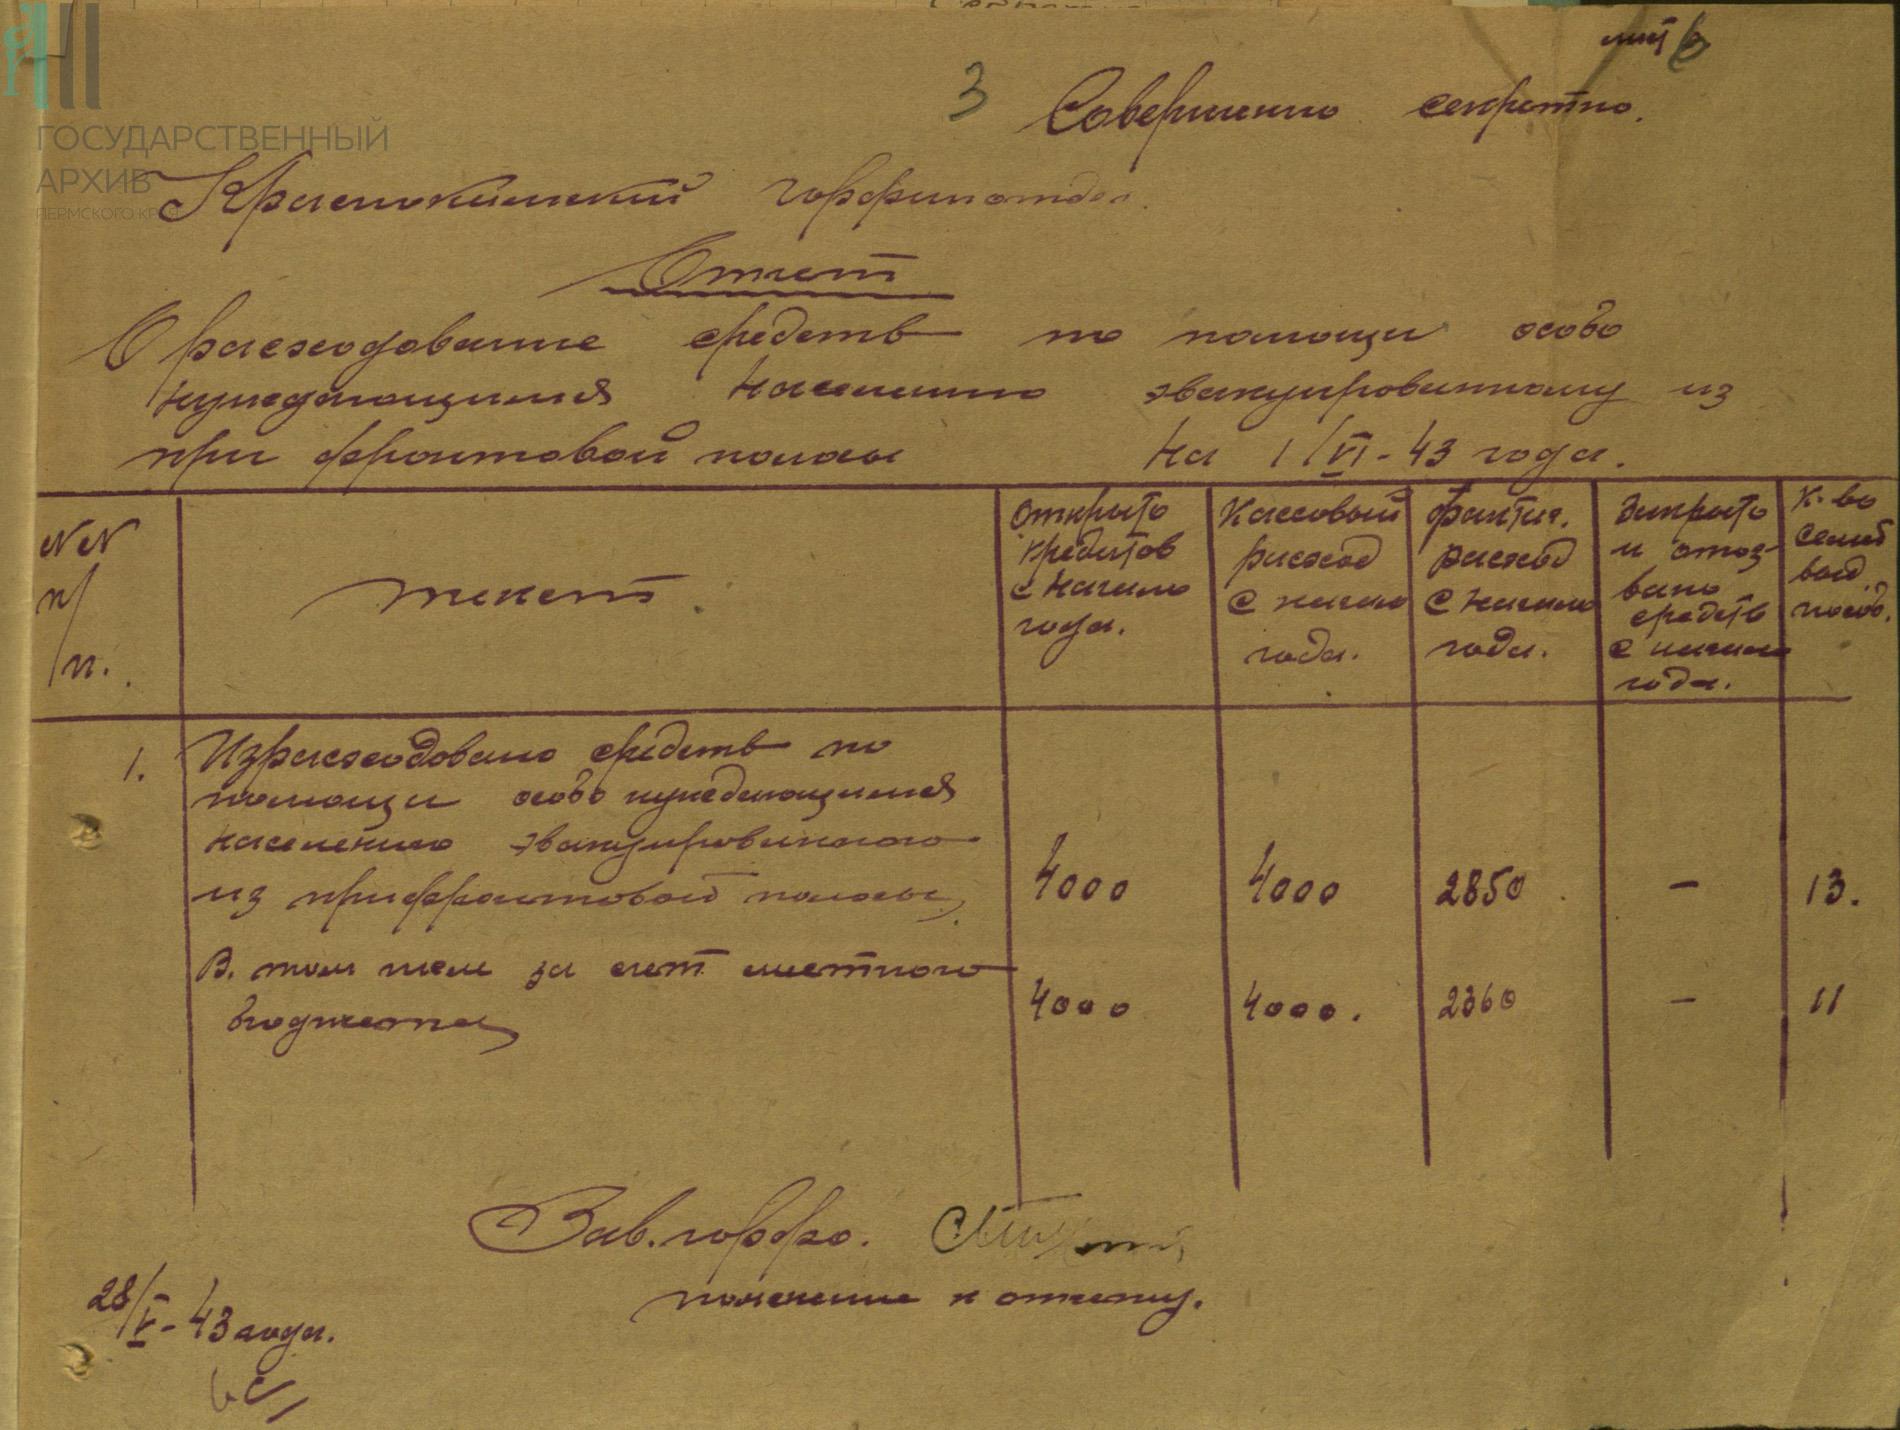 3
Совершенно секретно.
ГОСУДАРСТВЕННЫЙ
АРХИВ
ПЕРМСКОГО КРАЯ
Краснокамский горфинотдел.
Отчет
О расходование средств по помощи особо
нуждающимся населению эвакуированному из
при фронтовой полосы на 1/VI-43 года.
NN
п/
/п.
текст
Открыто
кредитов
с начала
года.
Кассовый
расход
с начала
года.
фактич.
расход
с начала
года.
Закрыто
и отоз-
вано
средств
с начала
года.
К-во
семей
пособ.
1. Израсходовано средств по
помощи особо нуждающимся
населению эвакуированного
из прифронтовой полосы, 4000 4000 2850 - 13.
В. том числе за счет местного
бюджета 4000 4000. 2360 - 11
Зав. горфо.
пояснение к отчету.
28/V-43 года.